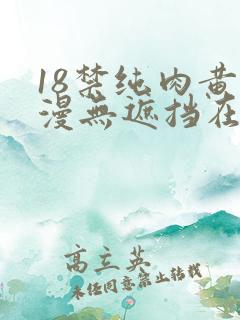 18禁纯肉黄
漫無遮挡在
高立英
未经同意禁止转载